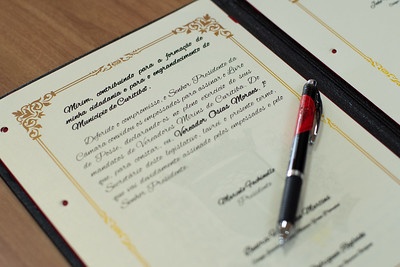 Mirim, contribuindo para a formação de
minha cidadania e para o engrandecimento do
Município de Curitiba".
Deferido o compromisso, o Senhor Presidente da
Câmara convidou os empossados para assinar o Livro
de Posse, declarando-os no pleno exercício de seus
mandatos de Vereadores Mirins de Curitiba. Do
que, para constar, eu, Vereador Osias Moraes, 1º
Secretário deste Legislativo, lavrei o presente termo,
que vai devidamente assinado pelos empossados e pelo
Senhor Presidente.
Marcelo
Presidente